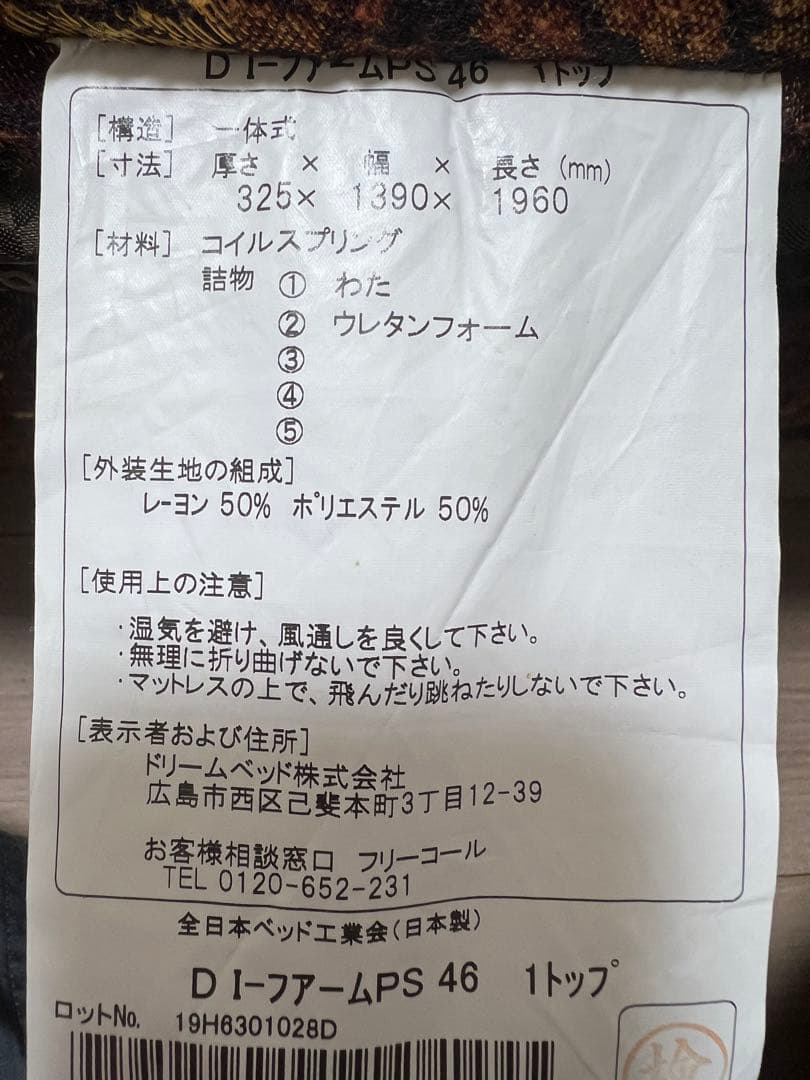 D I-ファームPS 46 1トップ
[構造] 一体式
[寸法] 厚さ × 幅 × 長さ (mm)
325× 1390× 1960
[材料] コイルスプリング
詰物 ① わた
② ウレタンフォーム
③
④
⑤
[外装生地の組成]
レーヨン 50% ポリエステル 50%
[使用上の注意]
・湿気を避け、風通しを良くして下さい。
・無理に折り曲げないで下さい。
・マットレスの上で、飛んだり跳ねたりしないで下さい。
[表示者および住所]
ドリームベッド株式会社
広島市西区己斐本町3丁目12-39
お客様相談窓口 フリーコール
TEL 0120-652-231
全日本ベッド工業会(日本製)
D I-ファームPS 46 1トップ
ロットNo. 19H6301028D
検